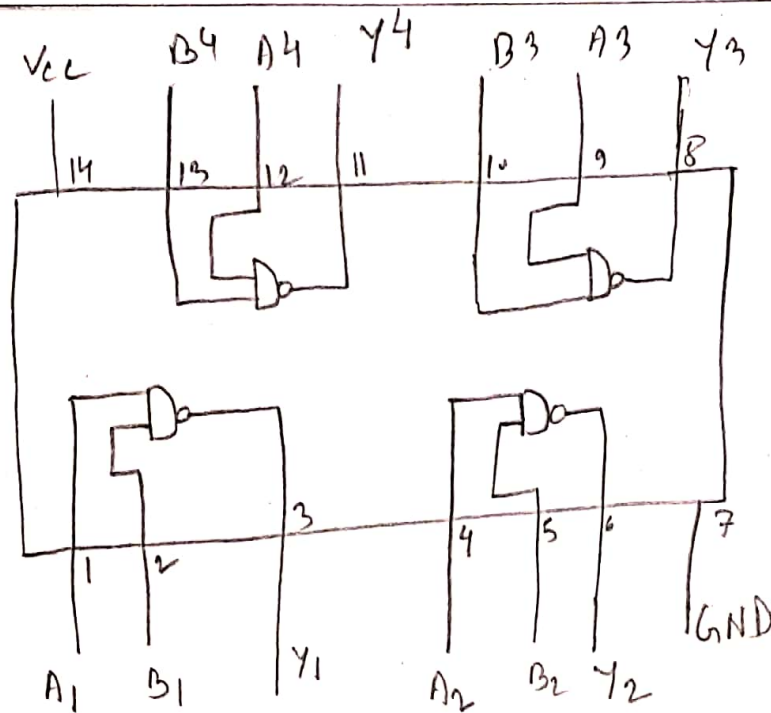 Vcc B4 A4 Y4 B3 A3 Y3
14 13 12 11 10 9 8
1 2 3 4 5 6 7
A1 B1 Y1 A2 B2 Y2 GND